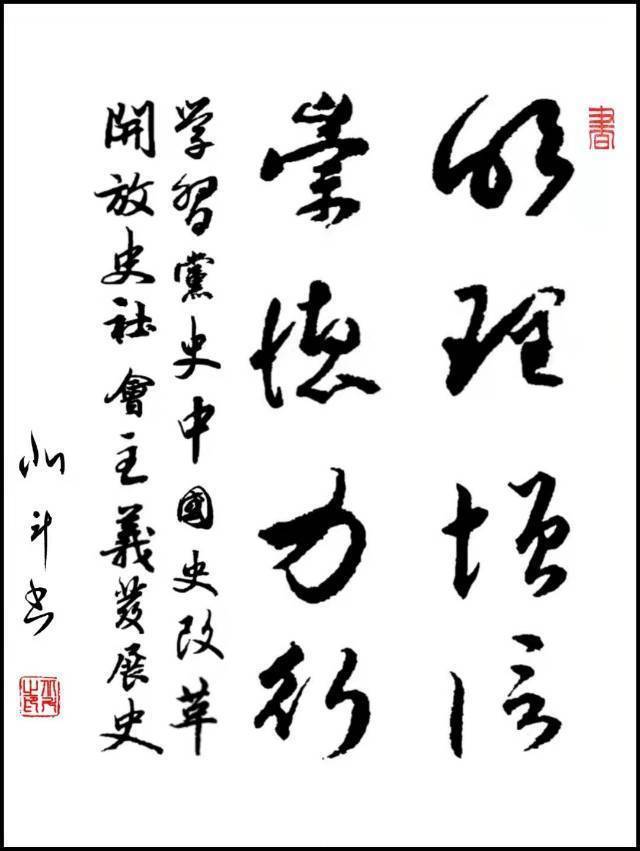 書
明理增信
崇德力行
学習黨史中國史改革
開放史社會主義發展史